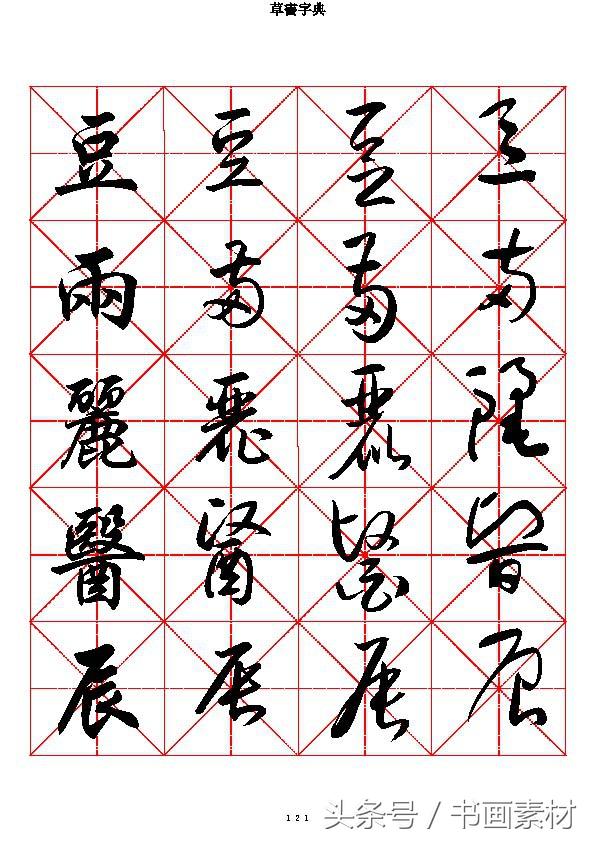 草書字典
豆 豆 豆 豆
兩 兩 兩 兩
麗 麗 麗 麗
醫 醫 醫 醫
辰 辰 辰 辰
121
头条号 / 书画素材